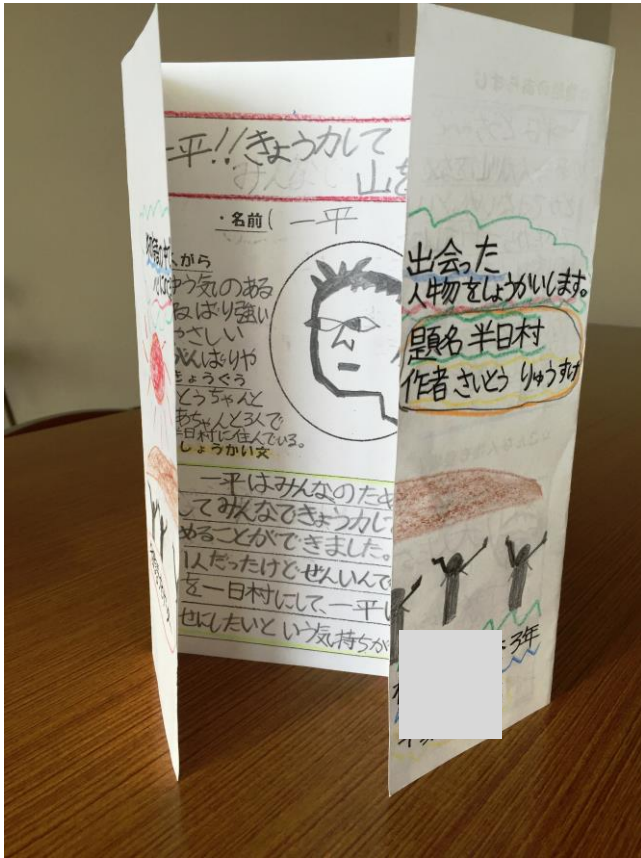 一平!!きょう力して
山を
・名前( 一平
がら
ゆう気のある
ねばり強い
やさしい
がんばりや
きょうぐう
とうちゃんと
あちゃんと3人で
半日村に住んでいる。
しょうかい文
一平はみんなのため
してみんなできょう力して
めることができました。
1人だったけどぜんいんで
を一日村にして、一平
せにしたいという気持ちが
出会った
人物をしょうかいします。
題名 半日村
作者 さいとう りゅうすけ
3年